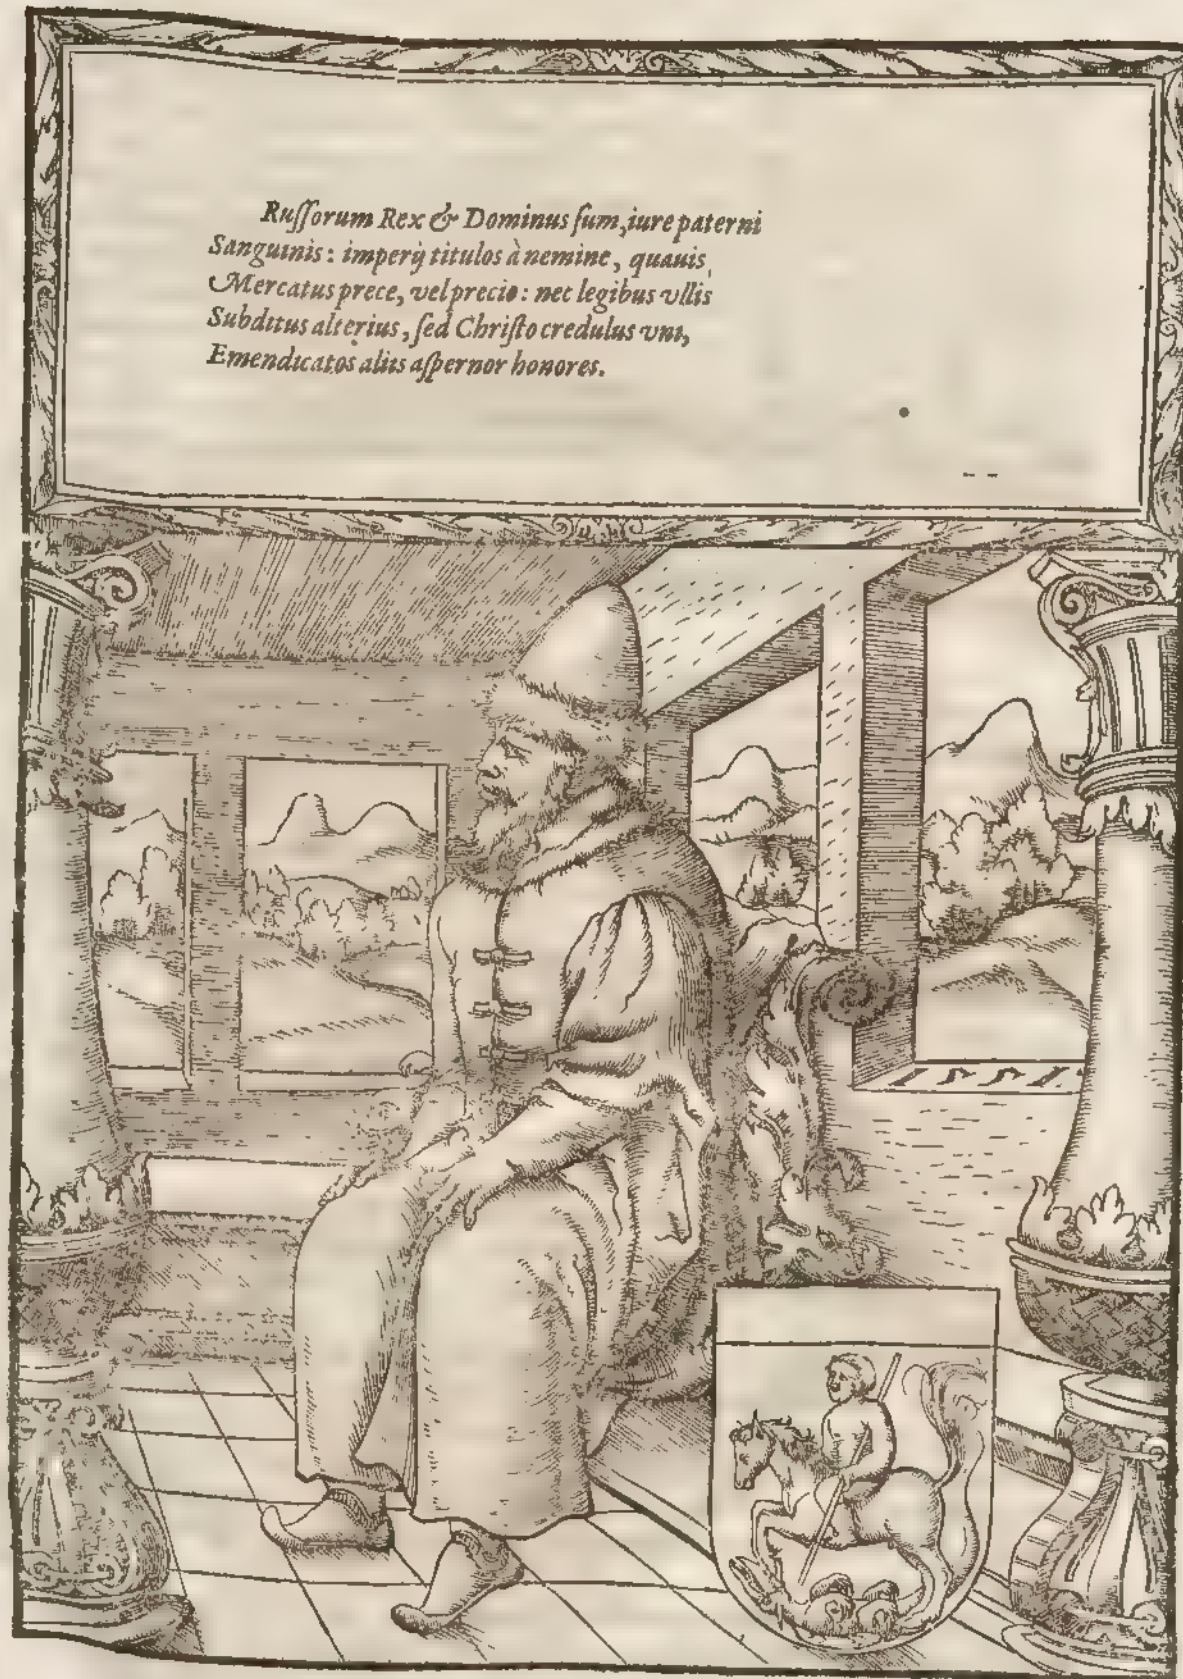 Ruſſorum Rex & Dominus ſum, iure paterni
Sanguinis: imperij titulos à nemine, quauis
Mercatus prece, vel precio: nec legibus vllis
Subditus alterius, ſed Chriſto credulus vni,
Emendicatos aliis aſpernor honores.